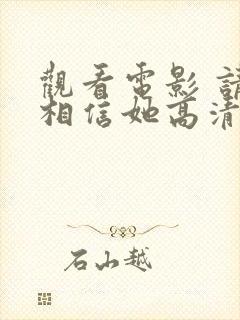 觀看電影 請
相信她高清
石山越